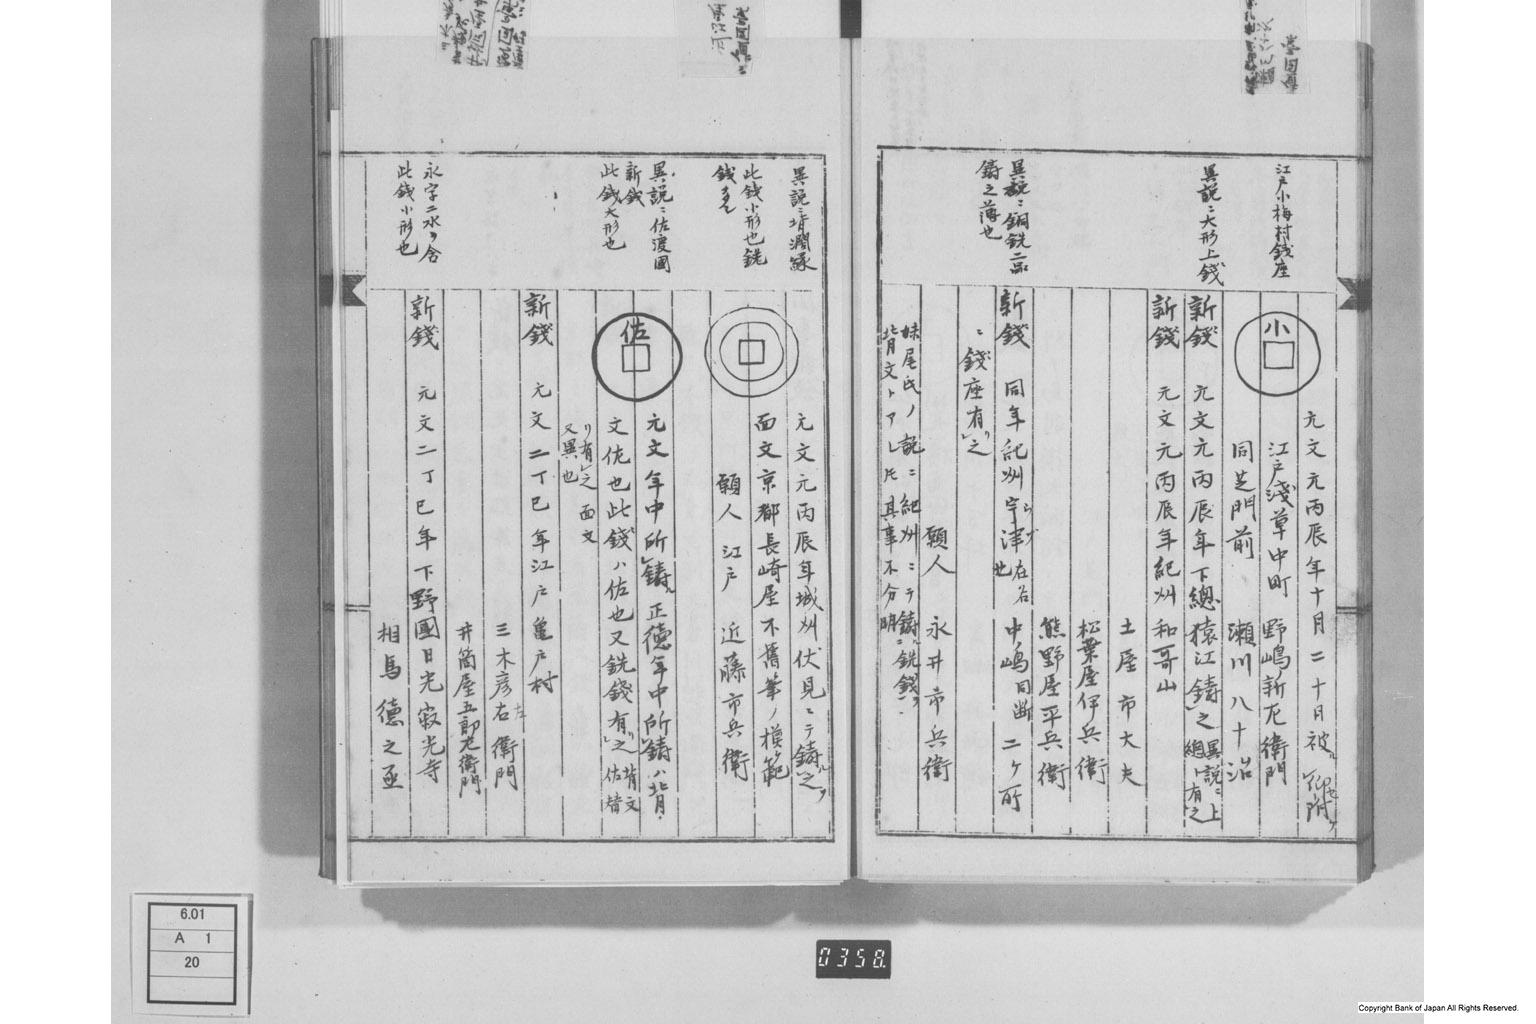 江戸小梅村銭座
小
元文元丙辰年十月二十日被
江戸浅草中町 野嶋新左衛門
同芝門前 瀬川八十治
異説ニ大形上銭
新銭 元文元丙辰年下總猿江鋳之 異説ニ上總ト有之
新銭 元文元丙辰年紀州和哥山
土屋市大夫
松葉屋伊兵衛
熊野屋平兵衛
異説ニ銅銑二品
鋳之薄也
新銭 同年紀州宇津 在名也 中嶋同断二ヶ所
ニ銭座有之
願人 永井市兵衛
妹尾氏ノ説ニ紀州ニテ鋳ル銑銭ヲ
背文トアレ𪜈其事不分明
異説ニ背潤縁
元文元丙辰年城州伏見ニテ鋳之
此銭小形也銑
銭多シ
面文京都長崎屋不舊筆ノ模範
願人 江戸 近藤市兵衛
異説ニ佐渡國
新銭
此銭大形也
佐
元文年中所鋳正徳年中所鋳ハ背
文佐也此銭ハ佐也又銑銭有之 背文佐
有之面文
又異也
新銭 元文二丁巳年江戸亀戸村
三木彦右衛門
左
井筒屋五郎左衛門
永字二水ヲ含
此銭小形也
新銭 元文二丁巳年下野國日光寂光寺
相馬徳之丞
6.01
A 1
20
0358.
Copyright Bank of Japan All Rights Reserved.